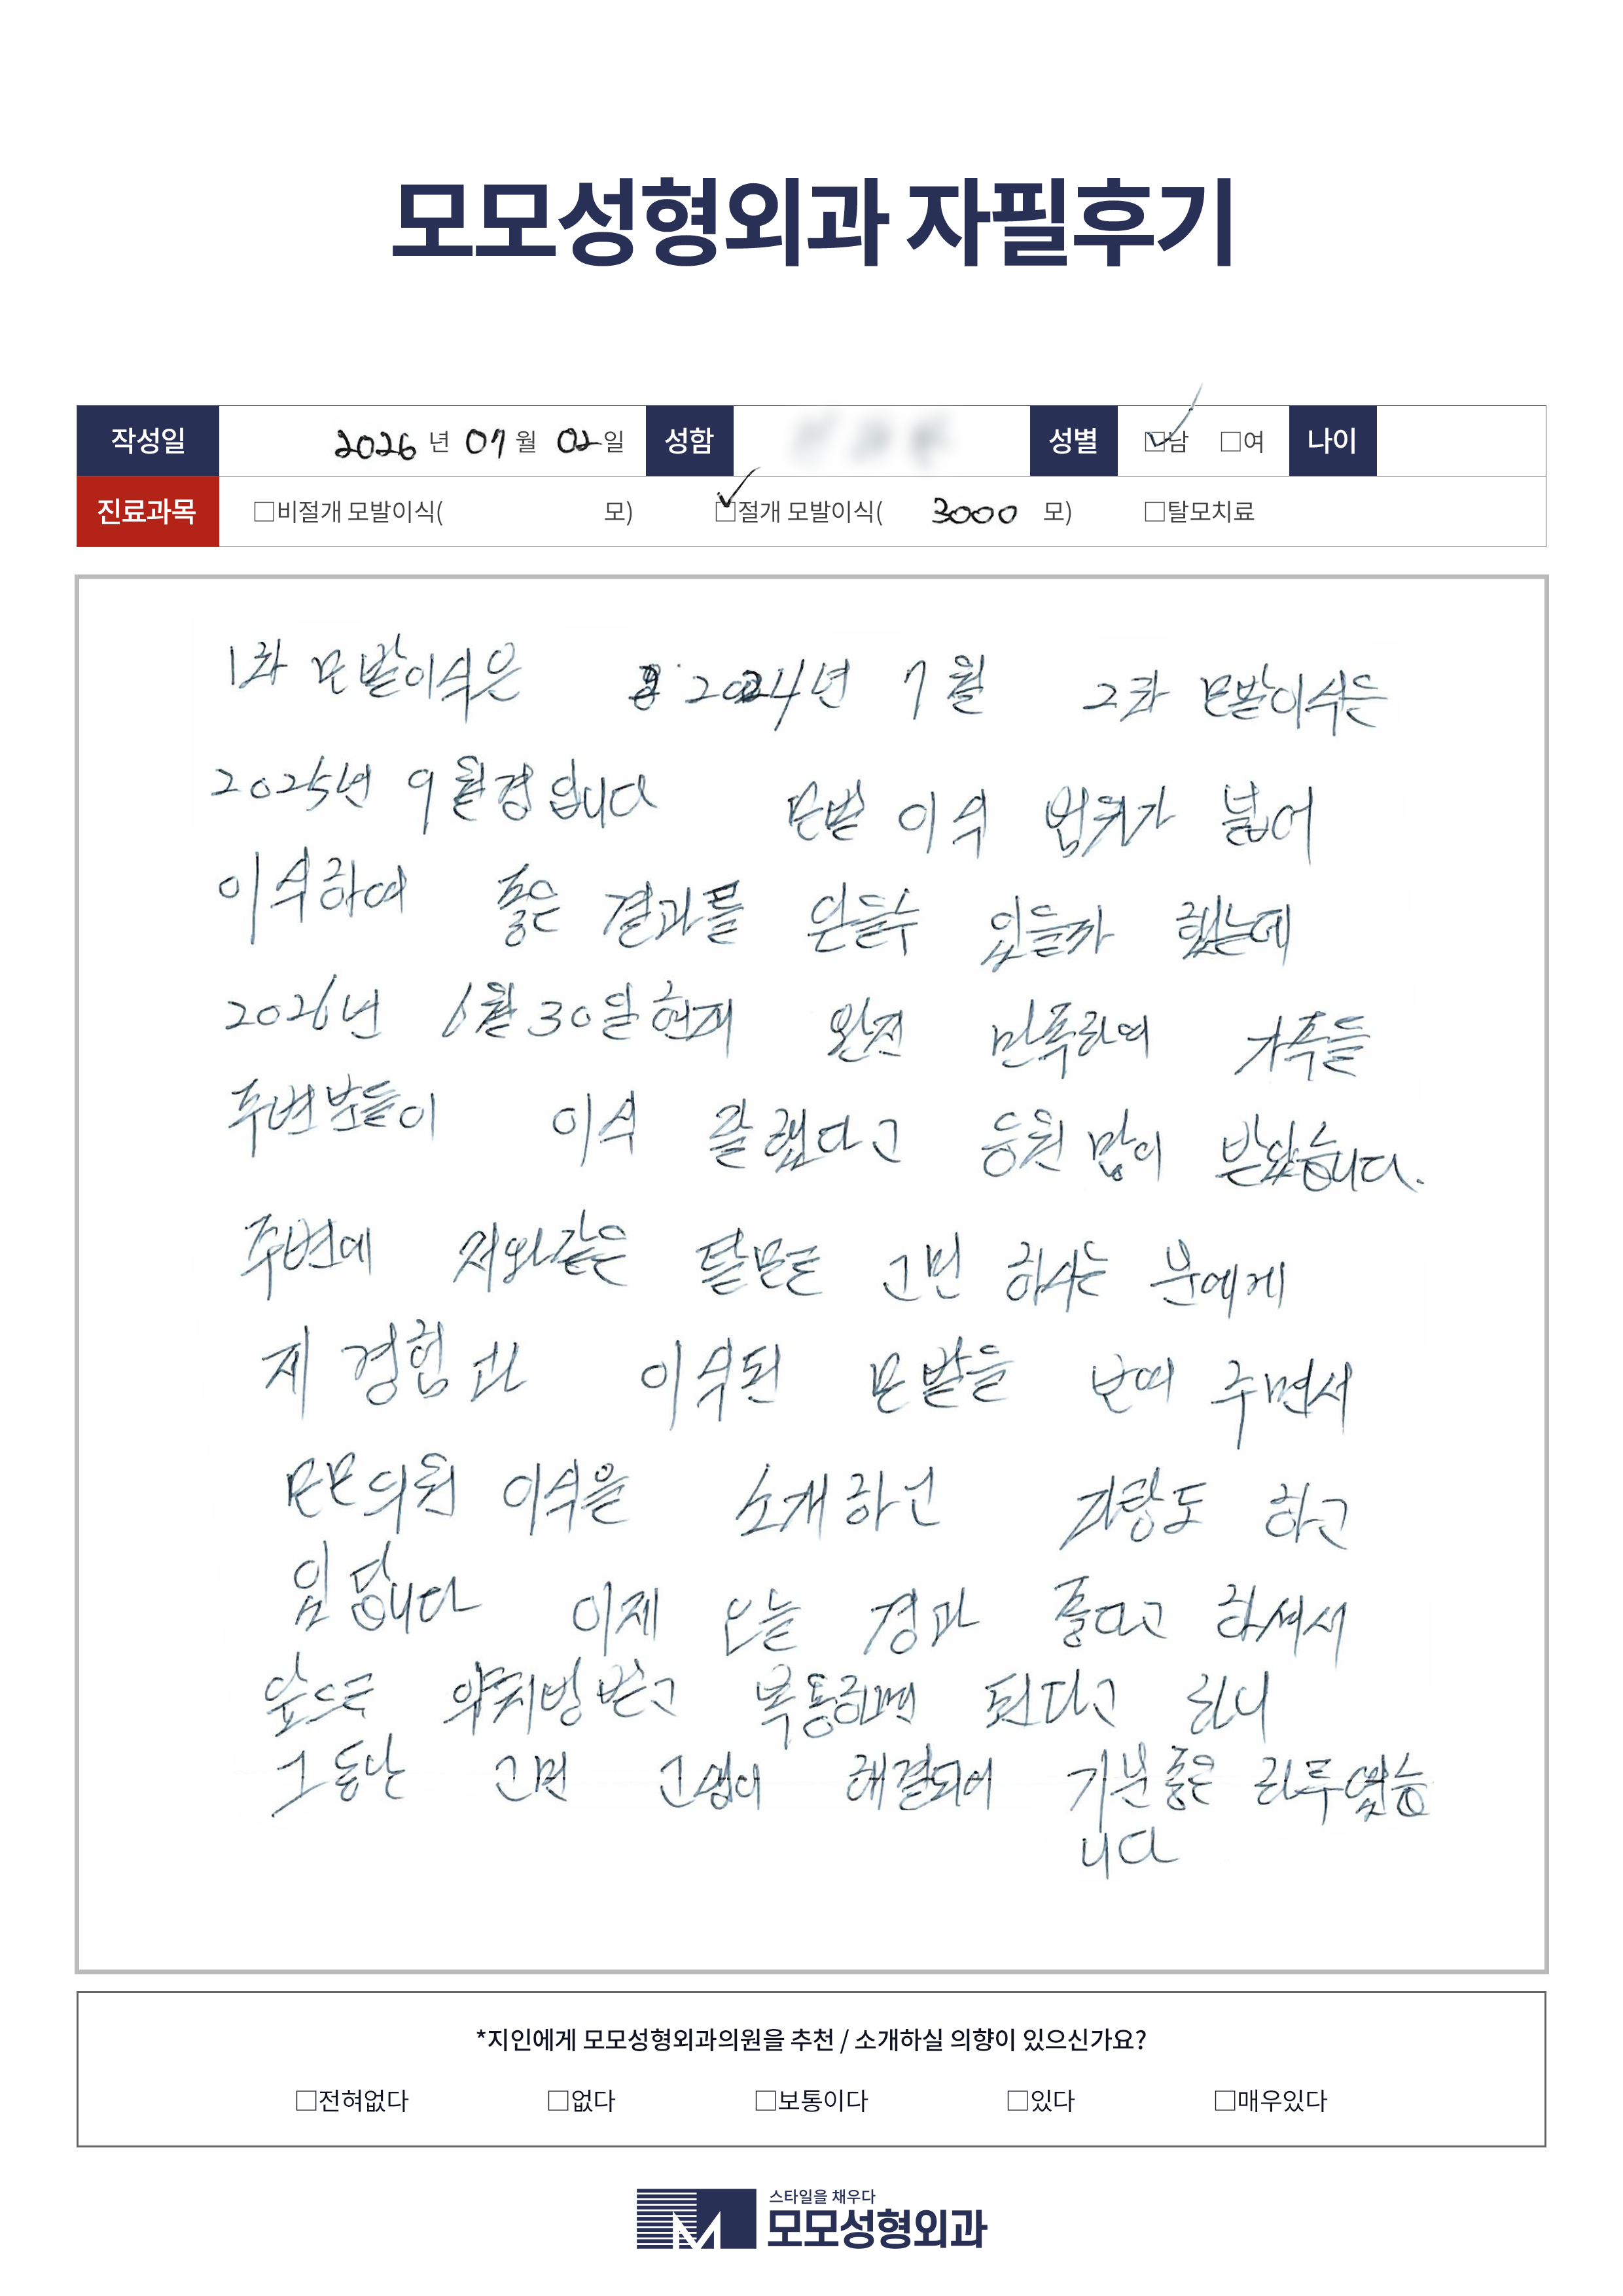 모모성형외과 자필후기
작성일 2026 년 07 월 02 일 성함 성별 □남 □여 나이
진료과목 □비절개 모발이식( 모) □절개 모발이식( 3000 모) □탈모치료
1차 모발이식은 2024년 7월 2차 모발이식은
2025년 9월경 입니다 모발 이식 범위가 넓어
이식하여 좋은 결과를 얻을수 있을까 했는데
2026년 6월 30일 현재 완전 만족하여 가족들
주변분들이 이식 잘했다고 응원 많이 받았습니다.
주변에 저와같은 탈모로 고민 하시는 분에게
제 경험과 이식된 모발을 보여 주면서
모모의원 이식을 소개하고 자랑도 하고
있답니다 이제 오늘 경과 좋다고 하셔서
앞으로 약처방 받고 복용하면 된다고 하니
그동안 고민 고생이 해결되어 기분좋은 하루였습
니다
*지인에게 모모성형외과의원을 추천 / 소개하실 의향이 있으신가요?
□전혀없다 □없다 □보통이다 □있다 □매우있다
스타일을 채우다
모모성형외과